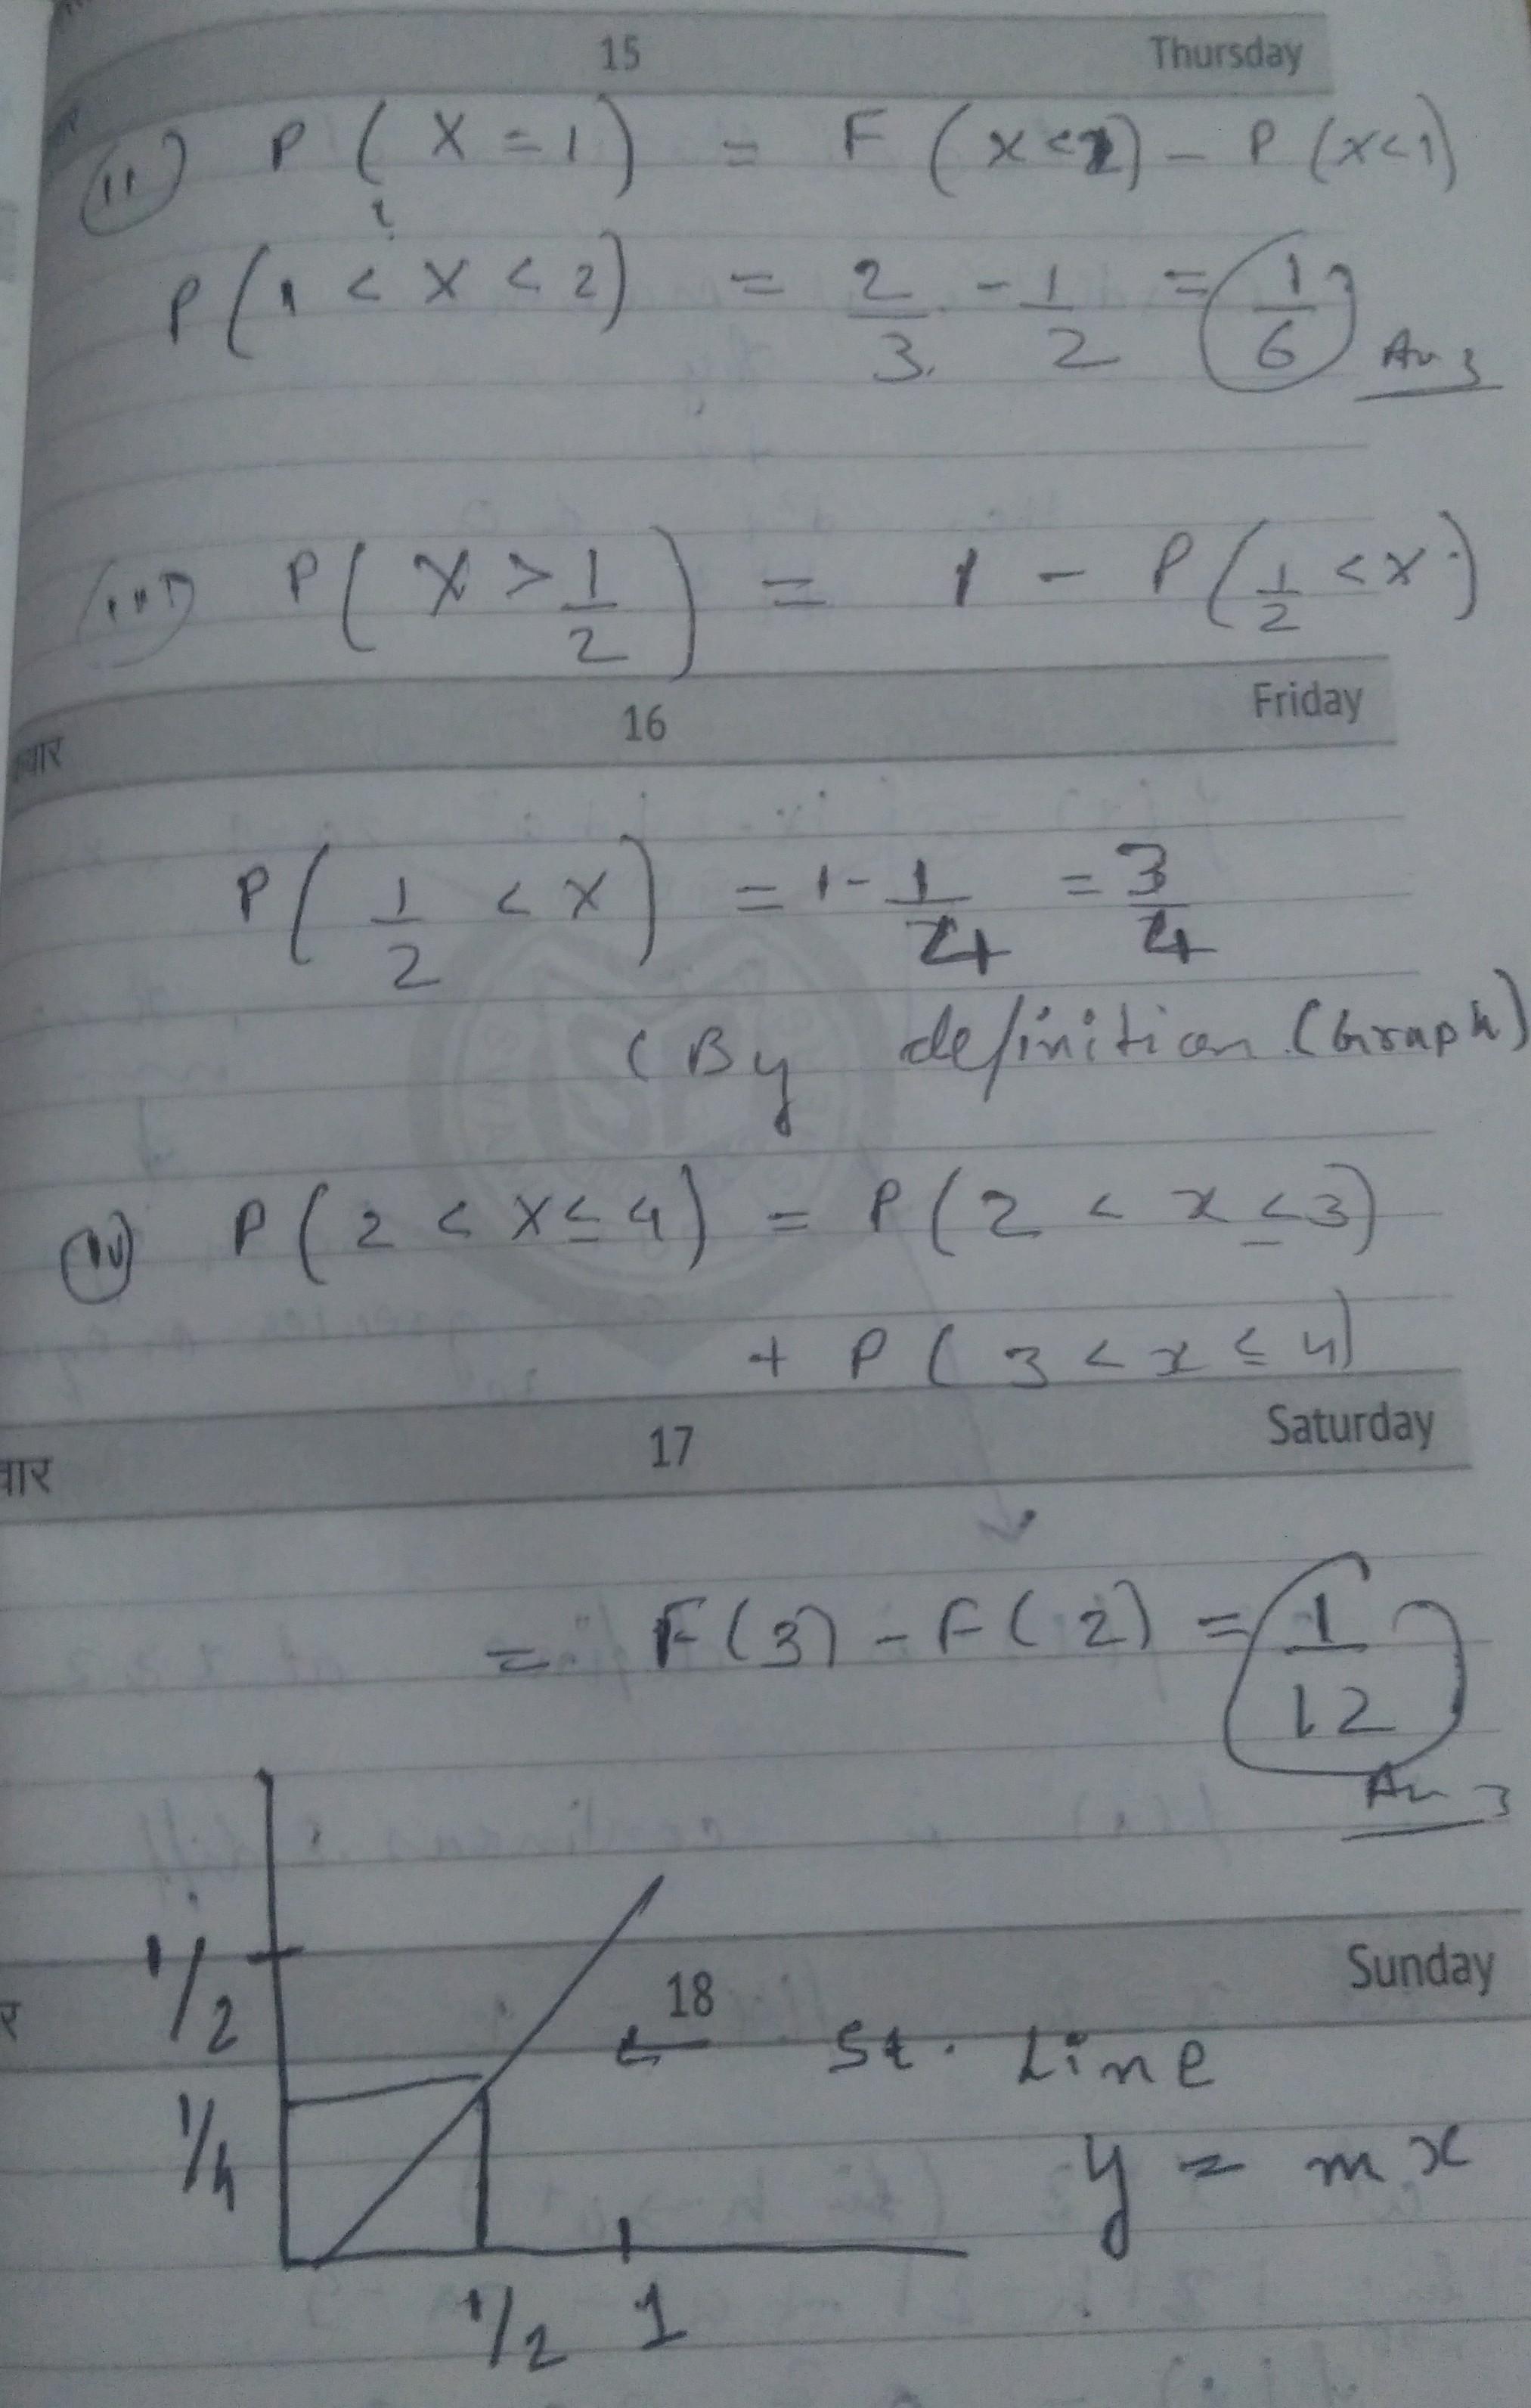 15 Thursday
(ii) P(X = 1) = F(x < 2) - P(x < 1)
P(1 < X < 2) = 2/3 - 1/2 = 1/6 Ans
(iii) P(X > 1/2) = 1 - P(1/2 < X)
वार 16 Friday
P(1/2 < X) = 1 - 1/4 = 3/4
(By definition (Graph)
(iv) P(2 < X ≤ 4) = P(2 < x ≤ 3)
+ P(3 < x ≤ 4)
वार 17 Saturday
= F(3) - F(2) = 1/12
Ans
1/2 18 Sunday
← St. Line
1/4 y = mx
1/2 1